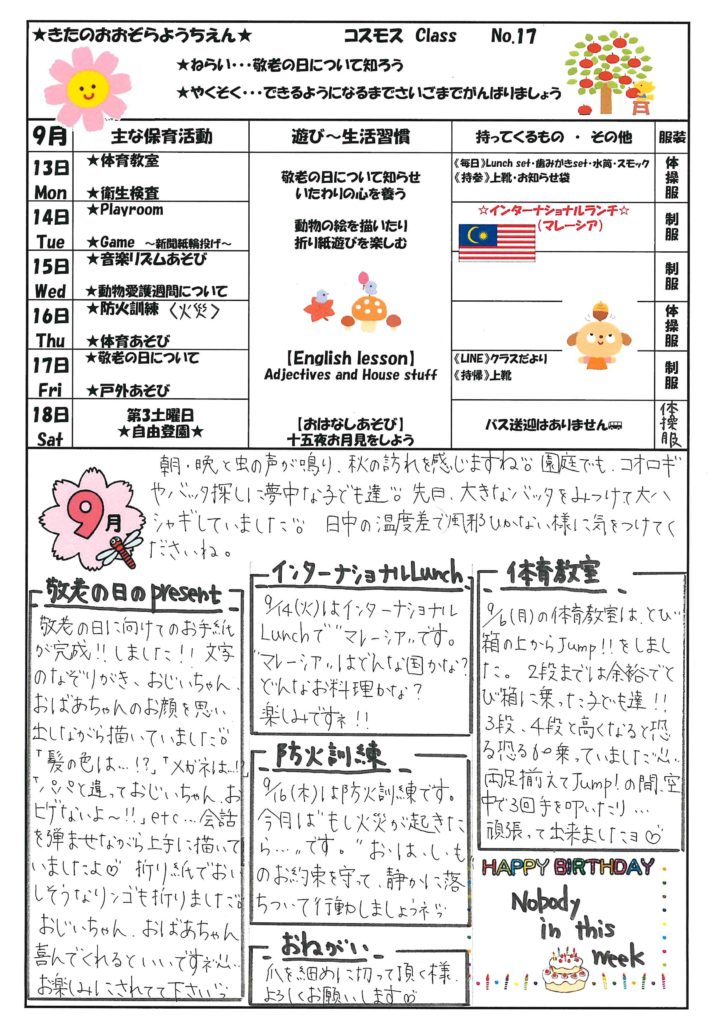 ★きたのおおぞらようちえん★ コスモス Class No.17
★ねらい・・・敬老の日について知ろう
★やくそく・・・できるようになるまでさいごまでがんばりましょう
9月 主な保育活動 遊び～生活習慣 持ってくるもの ・ その他 服装
13日 Mon
★体育教室
★衛生検査
14日 Tue
★Playroom
★Game ～新聞紙輪投げ～
15日 Wed
★音楽リズムあそび
★動物愛護週間について
16日 Thu
★防火訓練 〈火災〉
★体育あそび
17日 Fri
★敬老の日について
★戸外あそび
18日 Sat
第3土曜日
★自由登園★
敬老の日について知らせ
いたわりの心を養う
動物の絵を描いたり
折り紙遊びを楽しむ
【English lesson】
Adjectives and House stuff
【おはなしあそび】
十五夜お月見をしよう
《毎日》Lunch set・歯みがきset・水筒・スモック
《持参》上靴・お知らせ袋
☆インターナショナルランチ☆
(マレーシア)
《LINE》クラスだより
《持帰》上靴
バス送迎はありません
体操服
制服
制服
体操服
制服
体操服
9月
朝・晩と虫の声が鳴り、秋の訪れを感じますね。園庭でも、コオロギ
やバッタ探しに夢中な子ども達。先日、大きなバッタをみつけて大ハ
シャギしていました。日中の温度差で風邪ひかない様に気をつけてく
ださいね。
敬老の日のpresent
敬老の日に向けてのお手紙
が完成!!しました!!文字
のなぞりがき、おじいちゃん、
おばあちゃんのお顔を思い
出しながら描いていました
「髪の色は…!?」「メガネは…!?」
「パパと違っておじいちゃん、お
ヒゲないよ～!!」etc…会話
を弾ませながら上手に描いて
いましたよ♡ 折り紙でおい
しそうなリンゴも折りました
おじいちゃん、おばあちゃん
喜んでくれるといいですネ…
お楽しみにされてて下さい
インターナショナルLunch
9/14(火)はインターナショナル
Lunchで"マレーシア"です。
"マレーシア"はどんな国かな?
どんなお料理かな?
楽しみですネ!!
防火訓練
9/16(木)は防火訓練です。
今月は"もし火災が起きた
ら…"です。"お・は・し・も
のお約束を守って、静かに落
ちついて行動しましょうネ
おねがい
爪を細めに切って頂く様、
よろしくお願いします♡
体育教室
9/6(月)の体育教室は、とび
箱の上からJump!!をしまし
た。2段までは余裕でと
び箱に乗った子ども達!!
3段、4段と高くなると恐
る恐る乗っていました
両足揃えてJump!の間、空
中で3回手を叩いたり…
頑張って出来ましたヨ♡
HAPPY BIRTHDAY
Nobody
in this
week